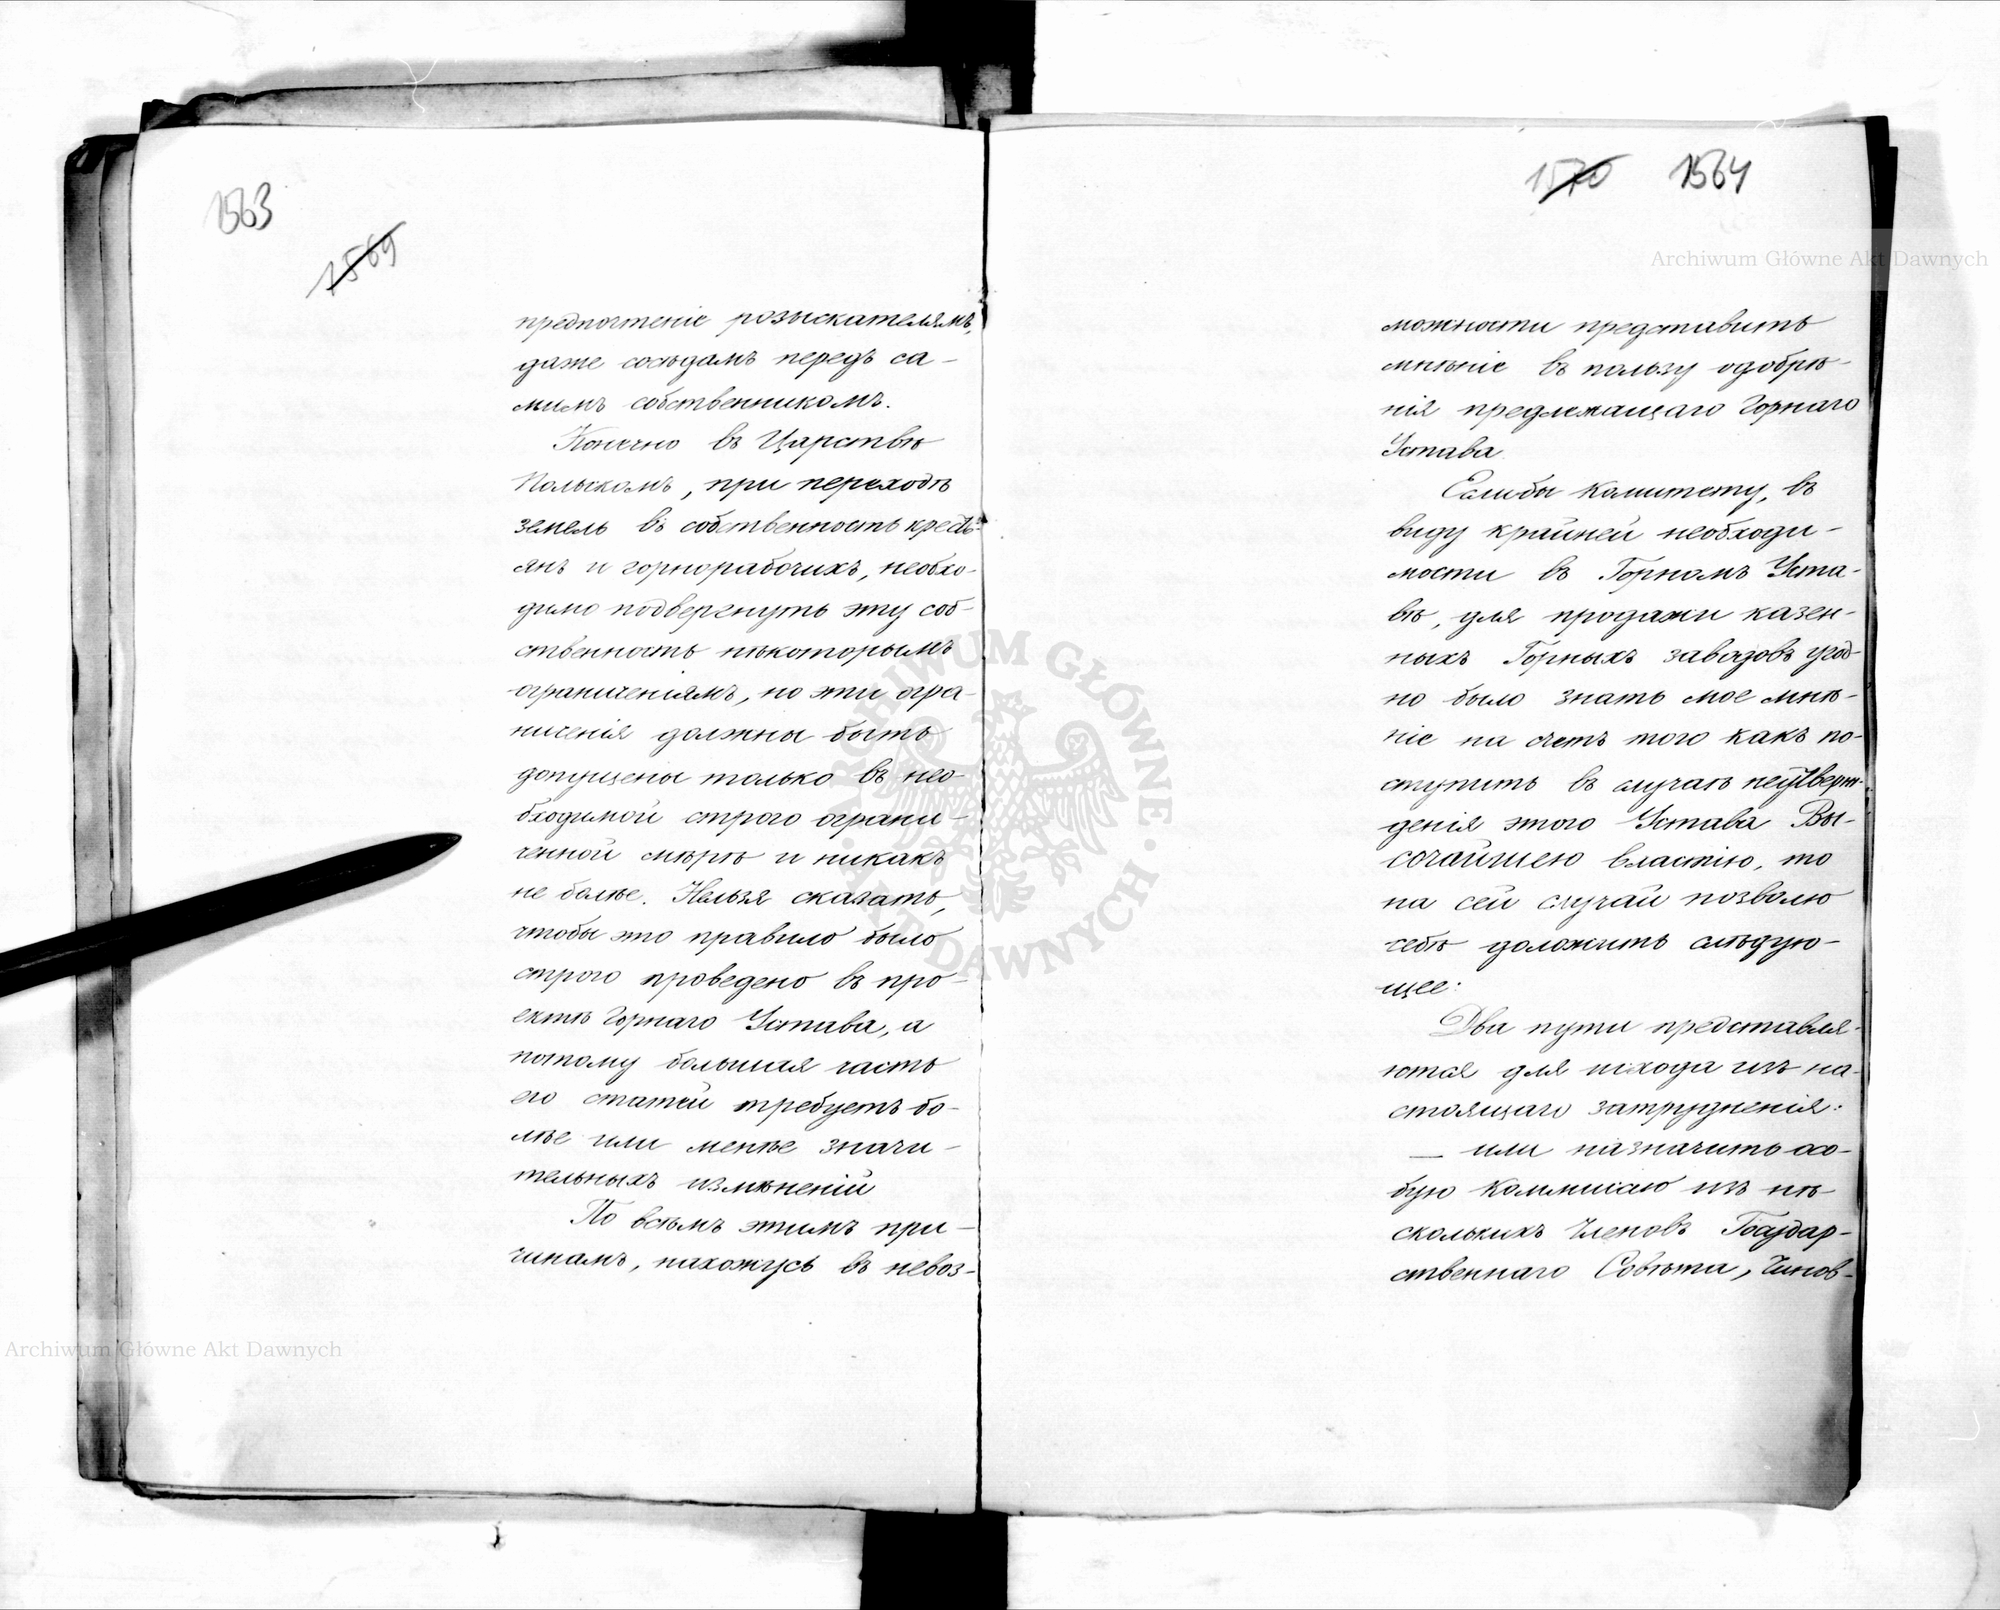 1563
1569
предпочтеніе розыскателямъ,
даже сосѣдамъ передъ са-
мимъ собственникомъ.
Конечно въ Царствѣ
Польскомъ, при переходѣ
земель въ собственность кресть-
янъ и горнорабочихъ, необхо-
димо подвергнуть эту соб-
ственность нѣкоторымъ
ограниченіямъ, но эти огра-
ниченія должны быть
допущены только въ нео-
бходимой строго ограни-
ченной мѣрѣ и никакъ
не болѣе. Нельзя сказать,
чтобы это правило было
строго проведено въ про-
ектѣ Горнаго Устава, а
потому большая часть
его статей требуетъ бо-
лѣе или менѣе значи-
тельныхъ измѣненій
По всѣмъ этимъ при-
чинамъ, нахожусь въ невоз-
1570 1564
можности представить
мнѣніе въ пользу одобрѣ-
нія предлежащаго Горнаго
Устава.
Еслибы Комитету, въ
виду крайней необходи-
мости въ Горномъ Уста-
вѣ, для продажи казен-
ныхъ Горныхъ заводовъ угод-
но было знать мое мнѣ-
ніе на счетъ того какъ по-
ступить въ случаѣ неутверж-
денія этого Устава Вы-
сочайшею властію, то
на сей случай позволю
себѣ доложить слѣдую-
щее:
Два пути представля-
ются для исхода изъ на-
стоящаго затрудненія:
— или назначить осо-
бую Коммисію изъ нѣ-
сколькихъ Членовъ Государ-
ственнаго Совѣта, Чинов-
Archiwum Główne Akt Dawnych
Archiwum Główne Akt Dawnych
ARCHIWUM GŁÓWNE AKT DAWNYCH